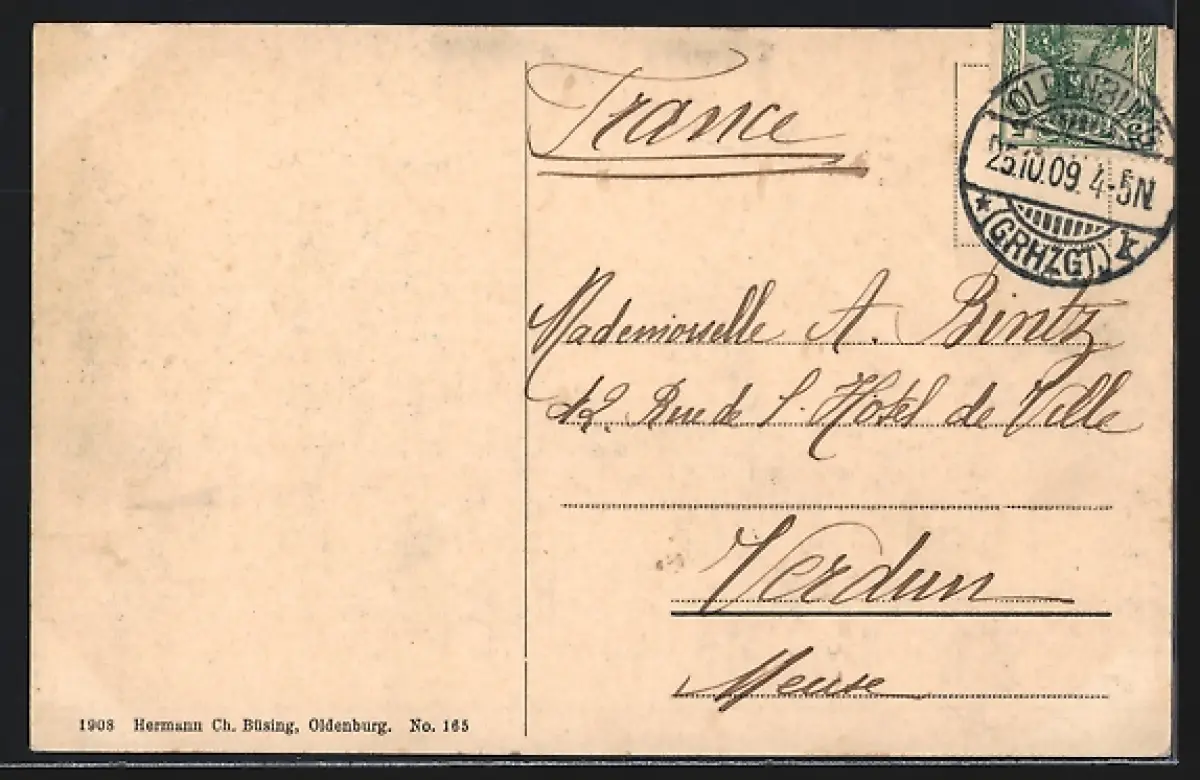 France
OLDENBURG
25.10.09. 4-5N
* (GRHZGT.) k
Mademoiselle A. Bintz
42. Rue de l. Hôtel de Ville
Verdun
Meuse
1908 Hermann Ch. Büsing, Oldenburg. No. 165